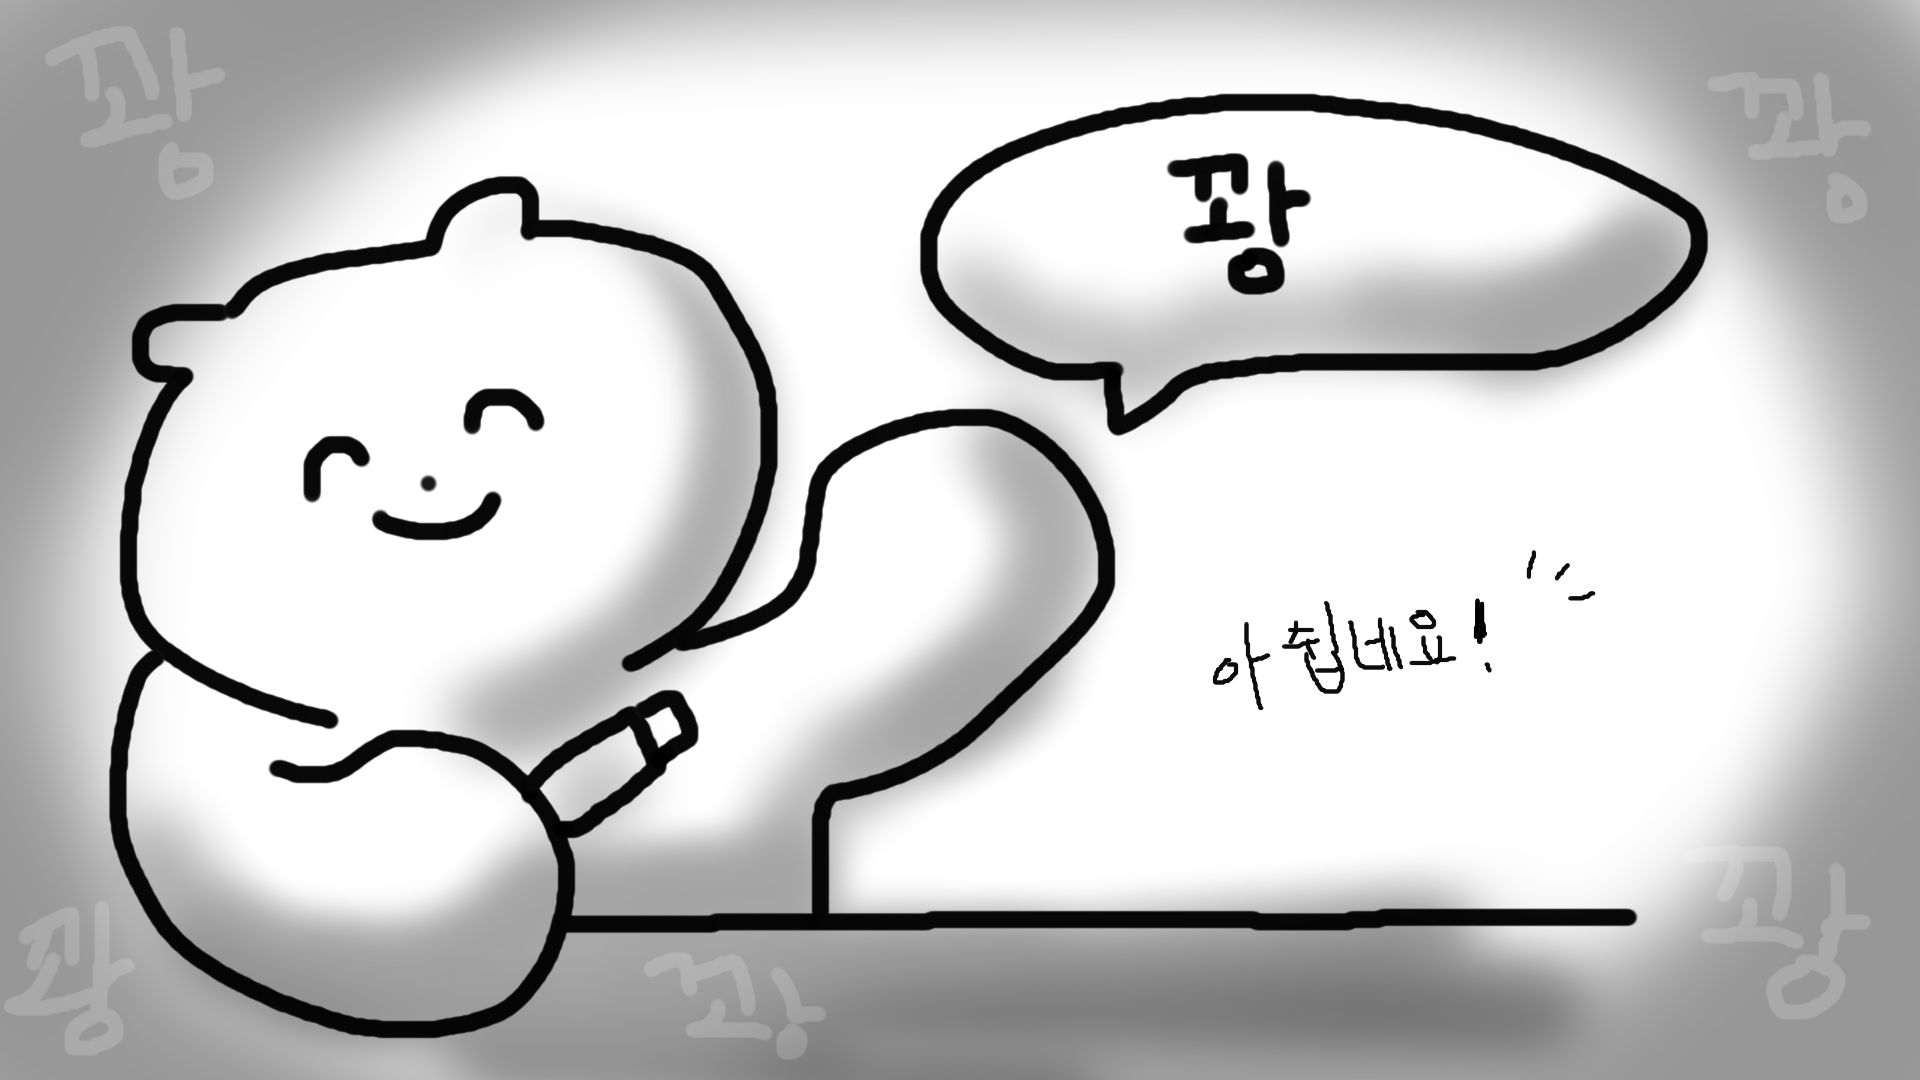 꽝
꽝
꽝
아쉽네요!
꽝
꽝
꽝